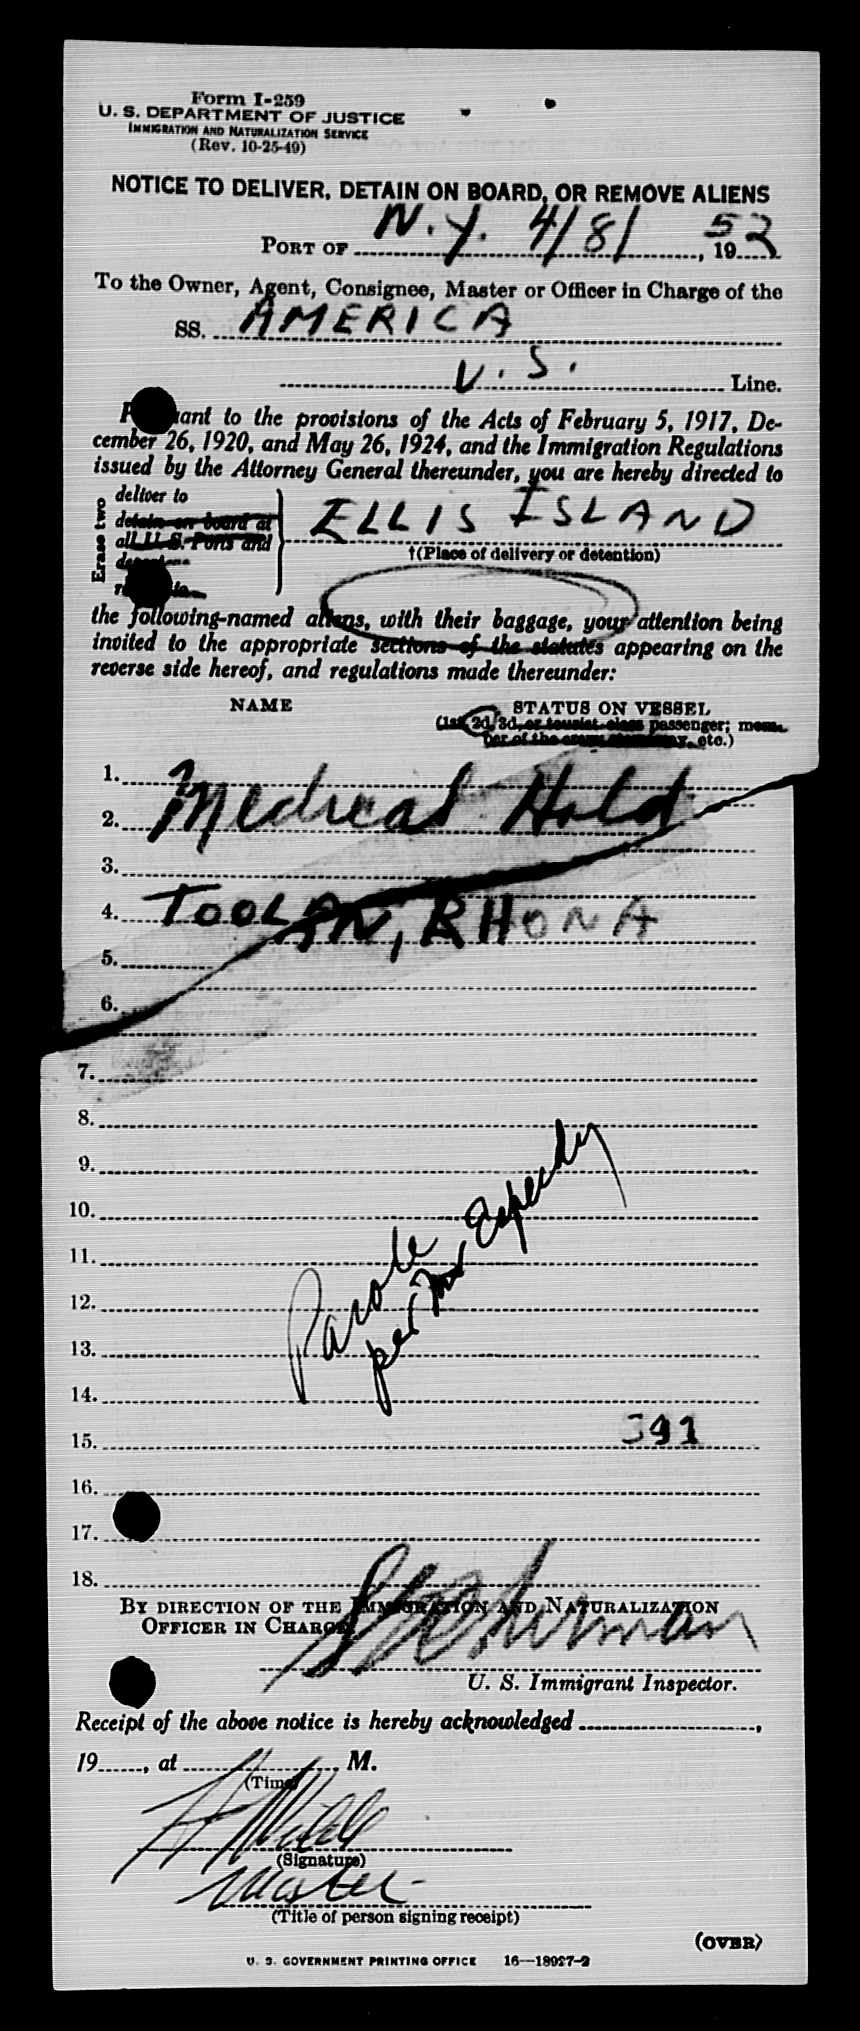 Form I-259
U. S. DEPARTMENT OF JUSTICE
IMMIGRATION AND NATURALIZATION SERVICE
(Rev. 10-25-49)
NOTICE TO DELIVER, DETAIN ON BOARD, OR REMOVE ALIENS
PORT OF N.Y. 4/8/, 1952
To the Owner, Agent, Consignee, Master or Officer in Charge of the
SS. AMERICA
U.S. Line.
ant to the provisions of the Acts of February 5, 1917, De-
cember 26, 1920, and May 26, 1924, and the Immigration Regulations
issued by the Attorney General thereunder, you are hereby directed to
Erase two
deliver to
detain on board at
all U.S. Ports and
ELLIS ISLAND
†(Place of delivery or detention)
the following-named aliens, with their baggage, your attention being
invited to the appropriate sections of the statutes appearing on the
reverse side hereof, and regulations made thereunder:
NAME STATUS ON VESSEL
(1st, 2d, 3d, or tourist class passenger; mem-
ber of the crew, etc.)
1.
2. Medical Hold
3.
4. TOOLAN, RHONA
5.
6.
7.
8.
9.
10.
11.
12.
13.
14.
Parole
per Mr Esperdy
15. 391
16.
17.
18.
BY DIRECTION OF THE IMMIGRATION AND NATURALIZATION
OFFICER IN CHARGE
Sherman
U. S. Immigrant Inspector.
Receipt of the above notice is hereby acknowledged ,
19 , at M.
(Time)
(Signature)
Master
(Title of person signing receipt)
(OVER)
U. S. GOVERNMENT PRINTING OFFICE 16—18927-2